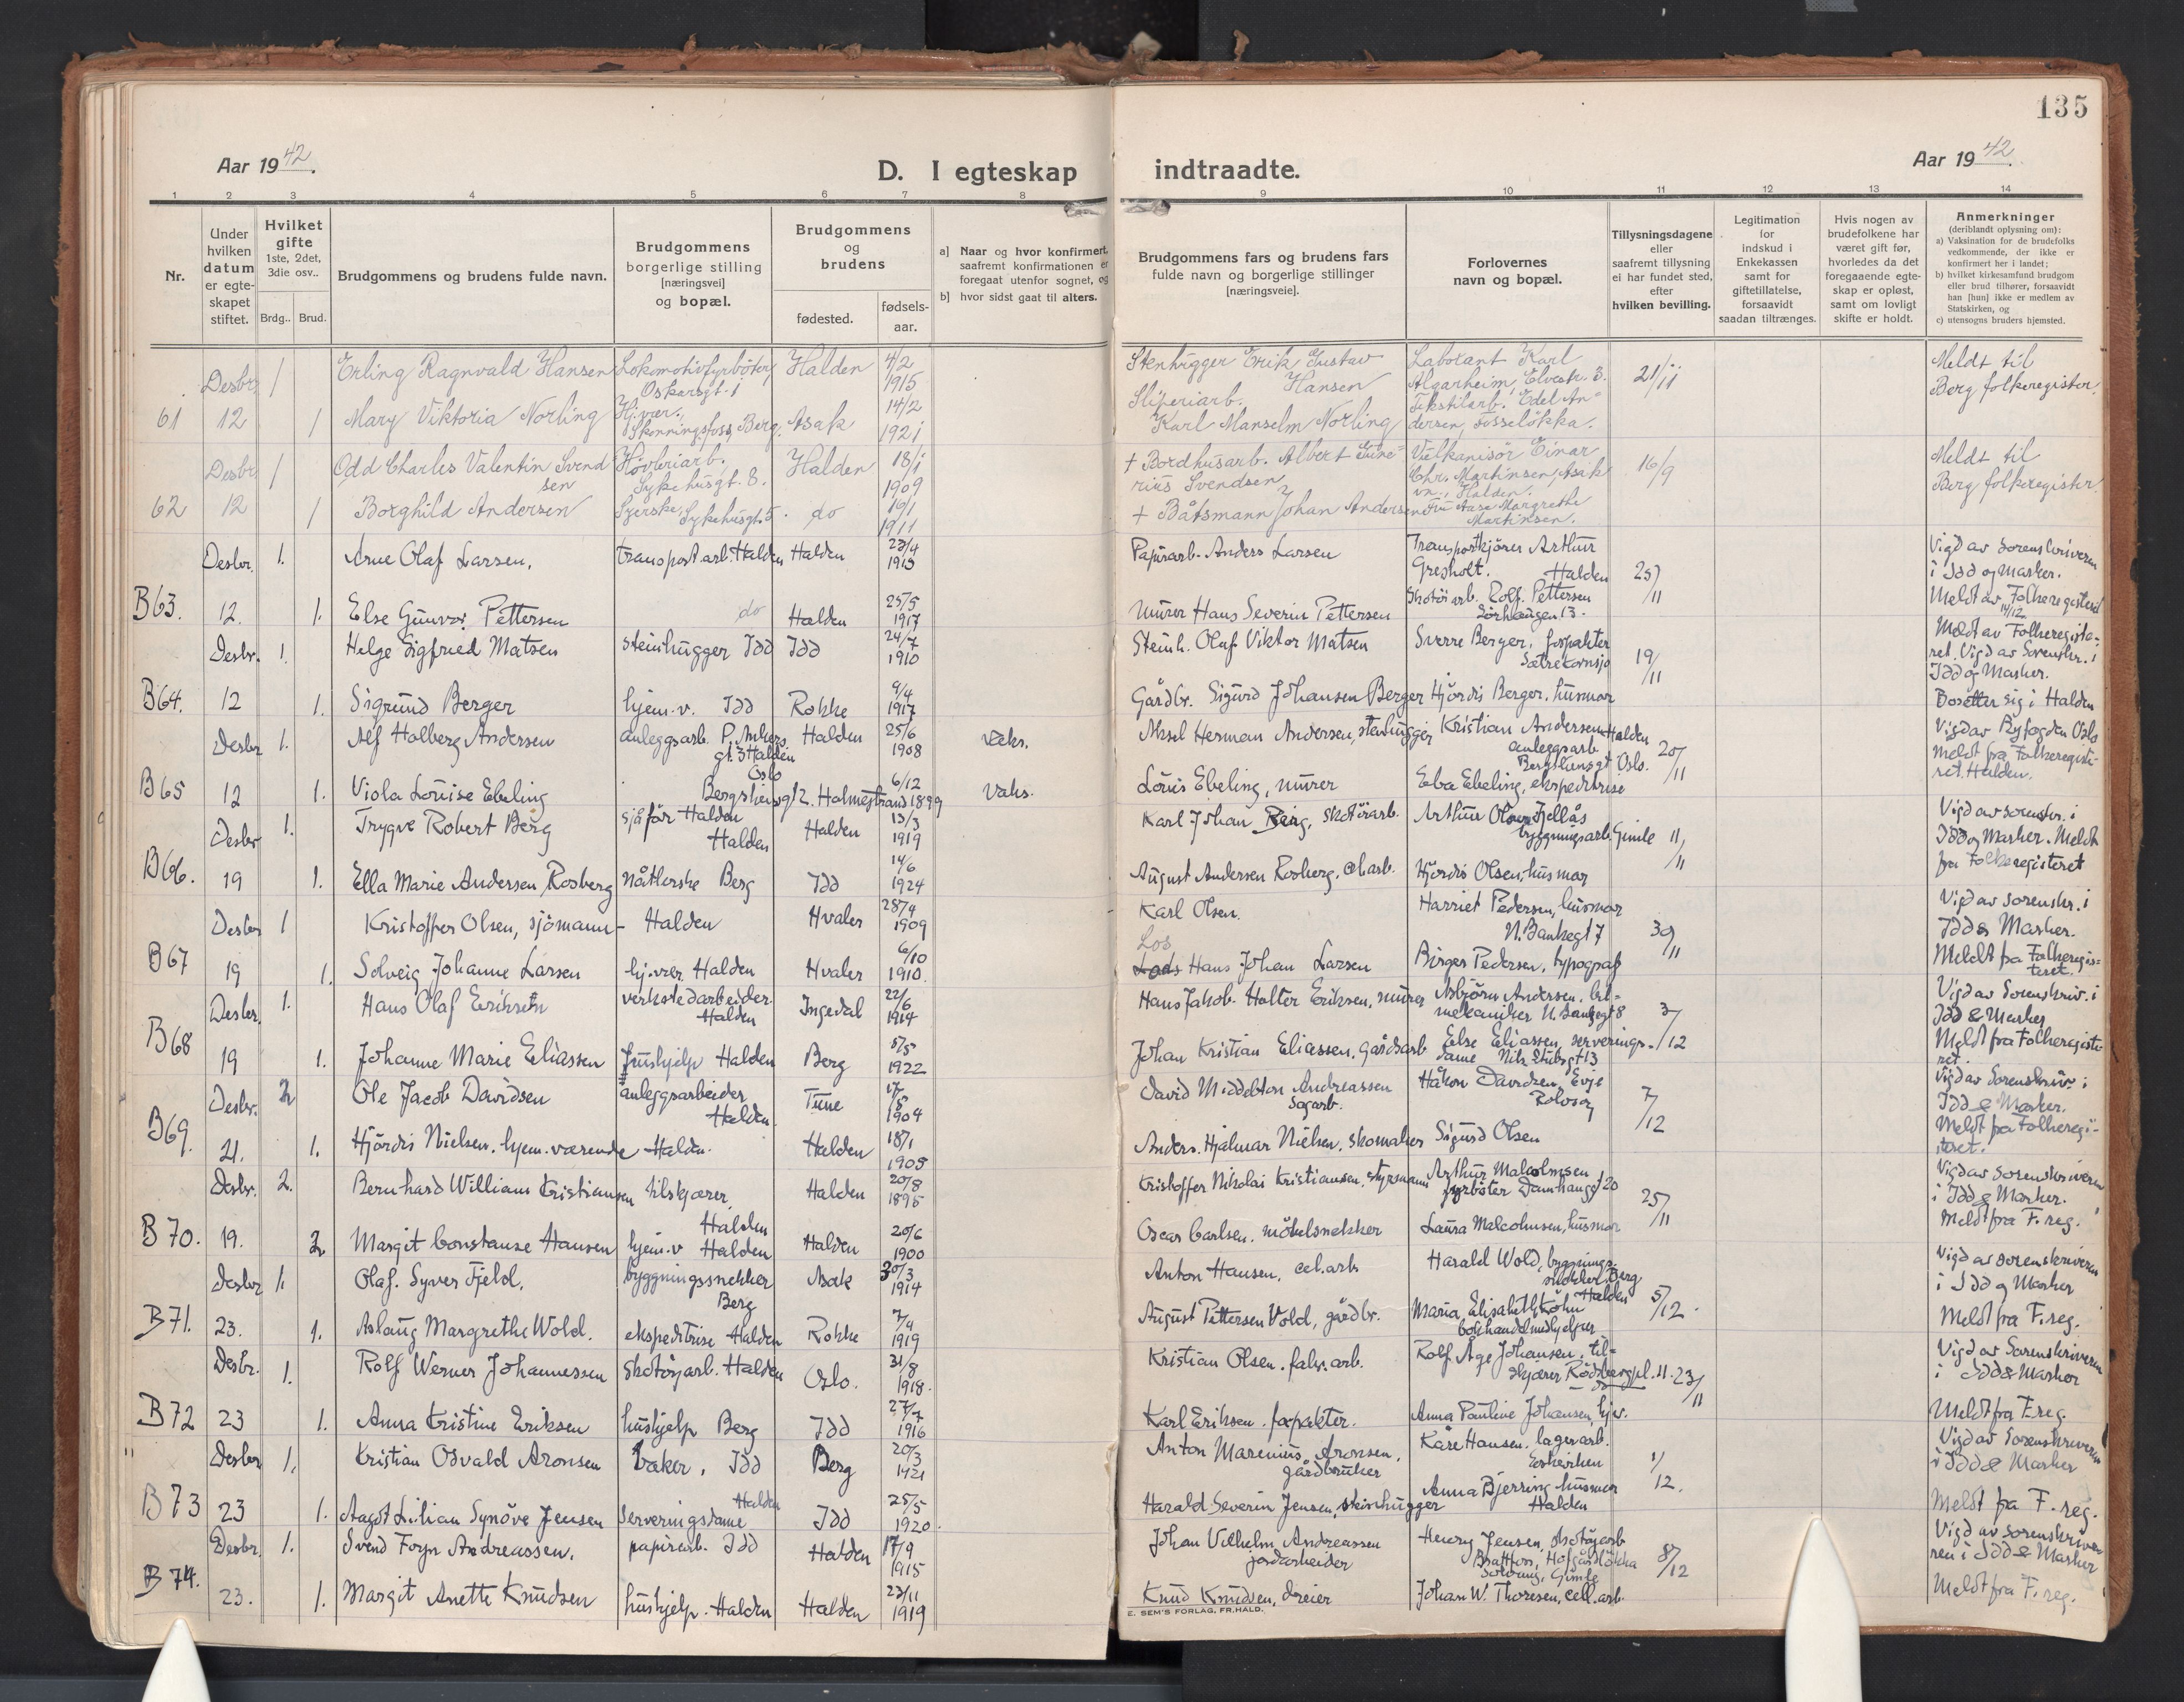 135
Aar 1942.
D. I egteskap indtraadte.
Aar 1942.
1 2 3 4 5 6 7 8 9 10 11 12 13 14
Nr.
Under hvilken datum er egteskapet stiftet.
Hvilket gifte 1ste, 2det, 3die osv..
Brdg.. Brud.
Brudgommens og brudens fulde navn.
Brudgommens borgerlige stilling [næringsvei] og bopæl.
Brudgommens og brudens
fødested.
fødsels-aar.
a] Naar og hvor konfirmert, saafremt konfirmationen er foregaat utenfor sognet, og
b] hvor sidst gaat til alters.
Brudgommens fars og brudens fars fulde navn og borgerlige stillinger [næringsveie].
Forlovernes navn og bopæl.
Tillysningsdagene eller saafremt tillysning ei har fundet sted, efter hvilken bevilling.
Legitimation for indskud i Enkekassen samt for giftetillatelse, forsaavidt saadan tiltrænges.
Hvis nogen av brudefolkene har været gift før, hvorledes da det foregaaende egteskap er opløst, samt om lovligt skifte er holdt.
Anmerkninger (deriblandt oplysning om):
a) Vaksination for de brudefolks vedkommende, der ikke er konfirmert her i landet;
b) hvilket kirkesamfund brudgom eller brud tilhører, forsaavidt han [hun] ikke er medlem av Statskirken, og
c) utensogns bruders hjemsted.
Desbr. 1 Erling Ragnvald Hansen Lokomotivfyrbøter, Oskarsgt. 1 Halden 4/2 1915 Stenhugger Erik Gustav Hansen Laborant Karl Algarheim, Elvestr. 3. 21/11 Meldt til Berg folkeregister.
61 12 1 Mary Viktoria Norling Hj.vær., Skonningsfoss, Berg. Asak 14/2 1921 Sliperiarb. Karl Manselm Norling Tekstilarb. Edel Andersen, Fosseløkka.
Desbr. 1 Odd Charles Valentin Svendsen Høvleriarb., Sykehusgt. 8. Halden 18/1 1909 + Bordhusarb. Albert Svendsen Vulkanisør Einar Chr. Martinsen, Asakvn., Halden. 16/9 Meldt til Berg folkeregister
62 12 1 Borghild Andersen Syerske, Sykehusgt. 5. do 16/1 1911 + Båtsmann Johan Andersen Fru Aase Margrethe Martinsen.
Desbr. 1. Arne Olaf Larsen, transportarb. Halden Halden 23/4 1915 Papirarb. Anders Larsen Transportkjører Arthur Gresholt. Halden 25/11 Vigd av sorenskriveren i Idd og Marker.
B63. 12. 1. Else Gunvor Pettersen do Halden 25/5 1917 murer Hans Severin Pettersen Skotøiarb. Rolf Pettersen Sørhaugen 13. Meldt av Folkeregisteret 14/12
Desbr. 1. Helge Sigfried Matsen steinhugger Idd Idd 24/7 1910 Steinh. Olaf Viktor Matsen Sverre Berger, forpakter Sætre Kornsjø 19/11 Meldt av Folkeregisteret. Vigd av Sorenskr. i Idd og Marker.
B64. 12 1. Sigrund Berger hjem.v. Idd Rokke 9/4 1917 Gårdbr. Sigurd Johansen Berger Hjördis Berger, husmor Bosetter sig i Halden
Desbr 1. Alf Holberg Andersen anleggsarb. P. Ankers gt. 3 Halden Halden 25/6 1908 Vaks. Aksel Herman Andersen, stenhugger Kristian Andersen Halden anleggsarb. 20/11 Vigd av Byfogden Oslo Meldt fra Folkeregisteret. Halden.
B65 12 1. Viola Louise Ebeling Oslo 6/12 Holmestrand 1899 Vaks. Louis Ebeling, murer Eba Ebeling, ekspeditrise Oslo.
Desbr 1. Trygve Robert Berg sjåfør Halden Halden Halden 13/3 1919 Karl Johan Berg, skotöiarb. Arthur Fjellås bygningsarb. Gimle 11/11 Vigd av sorenskr. i Idd og Marker. Meldt fra Folkeregisteret
B66. 19 1. Ella Marie Andersen Rosberg nåtlerske Berg Idd 14/6 1924 August Andersen Rosberg, cel.arb. Hjördis Olsen, husmor
Desbr 1 Kristoffer Olsen, sjömann - Halden Hvaler 28/4 1909 Karl Olsen. Harriet Pedersen, husmor N. Bankegt 7 30/11 Vigd av sorenskr. i Idd & Marker.
B67 19 1. Solveig Johanne Larsen hj.vær. Halden Hvaler 6/10 1910. Los Hans Johan Larsen Birger Pedersen, typograf Meldt fra Folkeregisteret.
Desbr. 1. Hans Olaf Eriksen verkstedarbeider Halden Ingedal 22/6 1914 Hans Jakob Holter Eriksen, murer Asbjörn Andersen, bilmekaniker N. Bankegt 8 3/12 Vigd av Sorenskriv. i Idd & Marker
B68 19 1. Johanne Marie Eliassen hushjelp Halden Berg 5/5 1922 Johan Kristian Eliassen, gårdsarb Else Eliassen, serveringsdame Nils Stubsgt 13 Meldt fra Folkeregisteret.
Desbr. 2 Ole Jacob Davidsen anleggsarbeider Halden. Tune 17/5 1904 David Middelton Andreassen Sagarb. Håkon Davidsen, Evje Rolvsøy 7/12 Vigd av Sorenskriv. i Idd & Marker.
B69. 21. 1. Hjördis Nielsen. hjem.værende Halden. Halden 18/1 1905 Anders Hjalmar Nielsen, skomaker Sigurd Olsen Meldt fra Folkeregisteret.
Desbr. 2. Bernhard William Kristiansen tilskjærer, Halden Halden 20/8 1895 Kristoffer Nikolai Kristiansen, styrmann Arthur Malcolmsen fyrböter Damhaugt 20 25/11 Vigd av sorenskriveren i Idd & Marker.
B70. 19. 2. Margit Constance Hansen hjem.v Halden Halden 20/6 1900 Oscar Carlsen, möbelsnekker Laura Malcolmsen, husmor Meldt fra F. reg.
Desbr 1. Olaf Syver Fjeld. byggningssnekker Berg Asak 30/3 1914 Anton Hansen, cel.arb. Harald Wold, bygningssnekker, Berg 5/12. Vigd av sorenskriveren i Idd og Marker
B71. 23. 1. Aslaug Margrethe Wold. ekspeditrise Halden Rokke 7/4 1919 August Pettersen Vold, gårdbr. Maria Elisabeth Köhn Halden bokhandelmedhjelper Meldt fra F. reg.
Desbr. 1. Rolf Werner Johannessen skotöyarb. Halden Oslo. 31/8 1918. Kristian Olsen, fabr.arb. Rolf Åge Johansen, tilskjærer Rödsbergpl. 11. 23/11 Vigd av Sorenskriveren i Idd & Marker
B72 23 1. Anna Kristine Eriksen hushjelp Berg Idd 27/7 1916 Karl Eriksen, forpakter. Anna Pauline Johansen, hjv. Meldt fra F. reg.
" Desbr 1. Kristian Osvald Aronsen baker, Idd Berg 20/3 1921 Anton Marenius Aronsen, gårdbruker Kåre Hansen, lagerarb. Eskeviken 1/12. Vigd av Sorenskriveren i Idd & Marker
B73 23 1. Aagot Lilian Synöve Jensen Serveringsdame Halden Idd 25/5 1920. Harald Severin Jensen, steinhugger Anna Bjerring husmor Halden Meldt fra F. reg.
Desbr. 1. Svend Foyn Andreassen. papirarb. Idd Halden 17/9 1915 Johan Vilhelm Andreassen jordarbeider Henry Jensen, skotöyarb Brattfoss, Gimle 8/12 Vigd av sorenskriveren i Idd & Marker
B74. 23. 1. Margit Anette Knudsen hushjelp. Halden Halden 23/11 1919 Knud Knudsen, dreier Johan W. Thoresen, cell.arb. Meldt fra F. reg.
E. SEM'S FORLAG, FR.HALD.